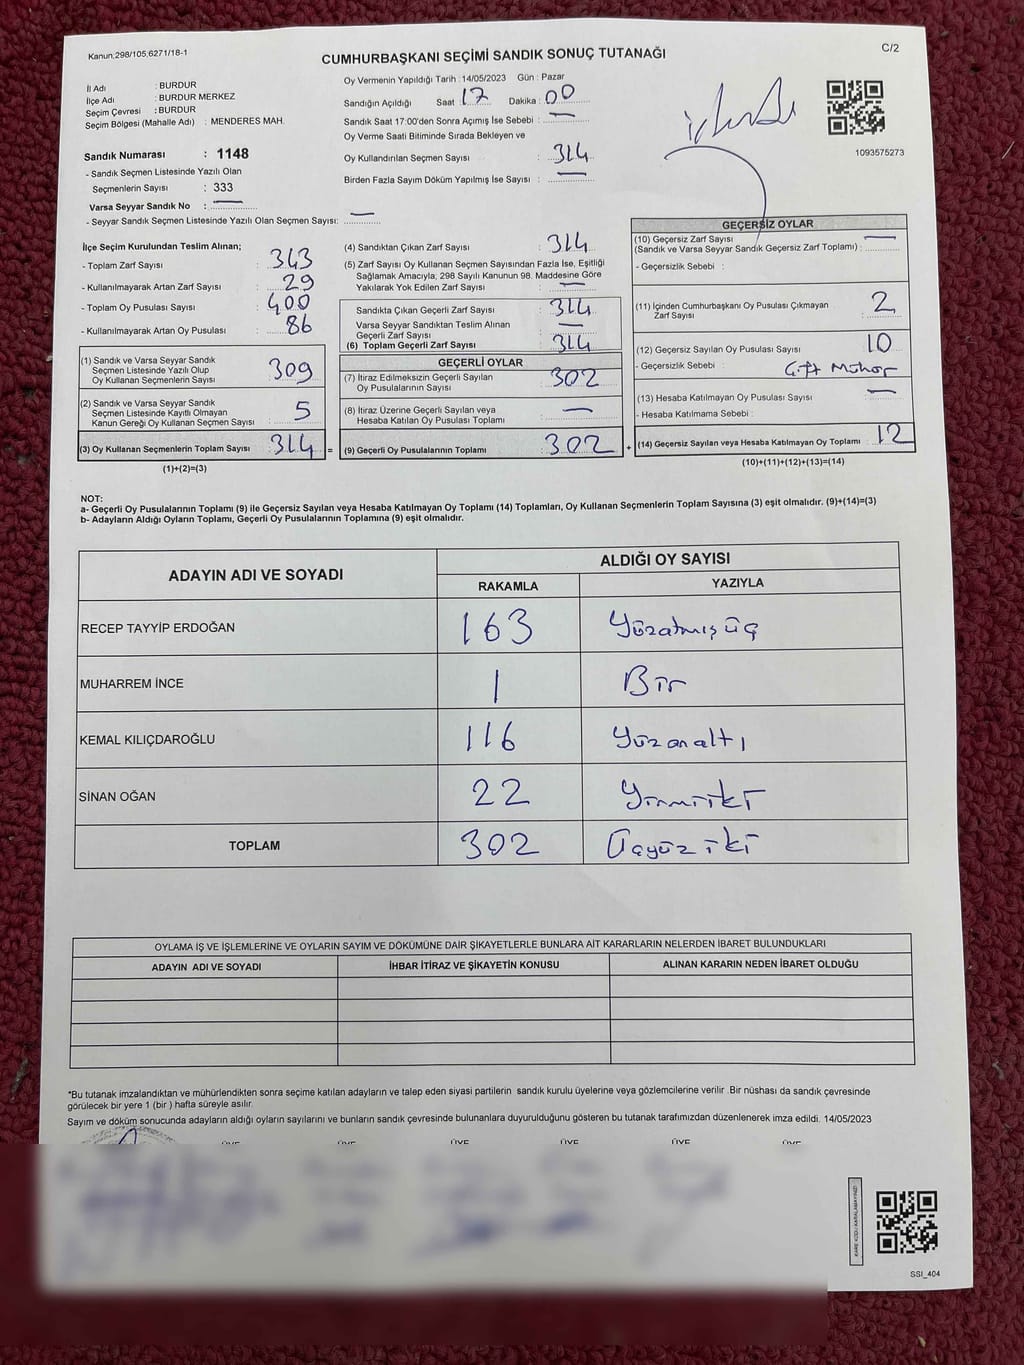 Kanun,298/105,6271/18-1
CUMHURBAŞKANI SEÇİMİ SANDIK SONUÇ TUTANAĞI
C/2
İl Adı : BURDUR
İlçe Adı : BURDUR MERKEZ
Seçim Çevresi : BURDUR
Seçim Bölgesi (Mahalle Adı) : MENDERES MAH.
Sandık Numarası : 1148
- Sandık Seçmen Listesinde Yazılı Olan
Seçmenlerin Sayısı : 333
Varsa Seyyar Sandık No : —
- Seyyar Sandık Seçmen Listesinde Yazılı Olan Seçmen Sayısı: —
Oy Vermenin Yapıldığı Tarih : 14/05/2023 Gün : Pazar
Sandığın Açıldığı Saat : 17 Dakika : 00
Sandık Saat 17:00'den Sonra Açımış İse Sebebi : —
Oy Verme Saati Bitiminde Sırada Bekleyen ve
Oy Kullandırılan Seçmen Sayısı : 314
Birden Fazla Sayım Döküm Yapılmış İse Sayısı : —
1093575273
İlçe Seçim Kurulundan Teslim Alınan;
- Toplam Zarf Sayısı : 343
- Kullanılmayarak Artan Zarf Sayısı : 29
- Toplam Oy Pusulası Sayısı : 400
- Kullanılmayarak Artan Oy Pusulası : 86
(1) Sandık ve Varsa Seyyar Sandık
Seçmen Listesinde Yazılı Olup
Oy Kullanan Seçmenlerin Sayısı : 309
(2) Sandık ve Varsa Seyyar Sandık
Seçmen Listesinde Kayıtlı Olmayan
Kanun Gereği Oy Kullanan Seçmen Sayısı : 5
(3) Oy Kullanan Seçmenlerin Toplam Sayısı : 314 =
(1)+(2)=(3)
(4) Sandıktan Çıkan Zarf Sayısı : 314
(5) Zarf Sayısı Oy Kullanan Seçmen Sayısından Fazla İse, Eşitliği
Sağlamak Amacıyla, 298 Sayılı Kanunun 98. Maddesine Göre
Yakılarak Yok Edilen Zarf Sayısı : —
Sandıkta Çıkan Geçerli Zarf Sayısı : 314
Varsa Seyyar Sandıktan Teslim Alınan
Geçerli Zarf Sayısı : —
(6) Toplam Geçerli Zarf Sayısı : 314
GEÇERLİ OYLAR
(7) İtiraz Edilmeksizin Geçerli Sayılan
Oy Pusulalarının Sayısı : 302
(8) İtiraz Üzerine Geçerli Sayılan veya
Hesaba Katılan Oy Pusulası Toplamı : —
(9) Geçerli Oy Pusulalarının Toplamı : 302 +
GEÇERSİZ OYLAR
(10) Geçersiz Zarf Sayısı —
(Sandık ve Varsa Seyyar Sandık Geçersiz Zarf Toplamı) :
- Geçersizlik Sebebi :
(11) İçinden Cumhurbaşkanı Oy Pusulası Çıkmayan
Zarf Sayısı : 2
(12) Geçersiz Sayılan Oy Pusulası Sayısı : 10
- Geçersizlik Sebebi : Çift Mühür
(13) Hesaba Katılmayan Oy Pusulası Sayısı : —
- Hesaba Katılmama Sebebi :
(14) Geçersiz Sayılan veya Hesaba Katılmayan Oy Toplamı : 12
(10)+(11)+(12)+(13)=(14)
NOT:
a- Geçerli Oy Pusulalarının Toplamı (9) ile Geçersiz Sayılan veya Hesaba Katılmayan Oy Toplamı (14) Toplamları, Oy Kullanan Seçmenlerin Toplam Sayısına (3) eşit olmalıdır. (9)+(14)=(3)
b- Adayların Aldığı Oyların Toplamı, Geçerli Oy Pusulalarının Toplamına (9) eşit olmalıdır.
ADAYIN ADI VE SOYADI
ALDIĞI OY SAYISI
RAKAMLA YAZIYLA
RECEP TAYYİP ERDOĞAN 163 Yüzatmışüç
MUHARREM İNCE 1 Bir
KEMAL KILIÇDAROĞLU 116 Yüzonaltı
SİNAN OĞAN 22 Yirmiiki
TOPLAM 302 Üçyüz iki
OYLAMA İŞ VE İŞLEMLERİNE VE OYLARIN SAYIM VE DÖKÜMÜNE DAİR ŞİKAYETLERLE BUNLARA AİT KARARLARIN NELERDEN İBARET BULUNDUKLARI
ADAYIN ADI VE SOYADI İHBAR İTİRAZ VE ŞİKAYETİN KONUSU ALINAN KARARIN NEDEN İBARET OLDUĞU
*Bu tutanak imzalandıktan ve mühürlendikten sonra seçime katılan adayların ve talep eden siyasi partilerin sandık kurulu üyelerine veya gözlemcilerine verilir .Bir nüshası da sandık çevresinde
görülecek bir yere 1 (bir ) hafta süreyle asılır.
Sayım ve döküm sonucunda adayların aldığı oyların sayılarını ve bunların sandık çevresinde bulunanlara duyurulduğunu gösteren bu tutanak tarafımızdan düzenlenerek imza edildi. 14/05/2023
ÜYE ÜYE ÜYE ÜYE ÜYE ÜYE
KARE KODU KARALAMAYINIZ!
SSI_404